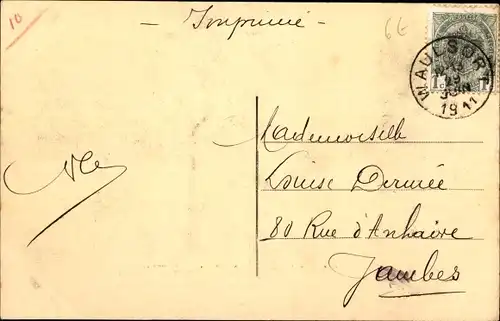 10
- Imprimé -
6E
WAULSORT
19
JUIN
1911
Mademoiselle
Louise Dermée
80 Rue d'Anhaive
Jambes